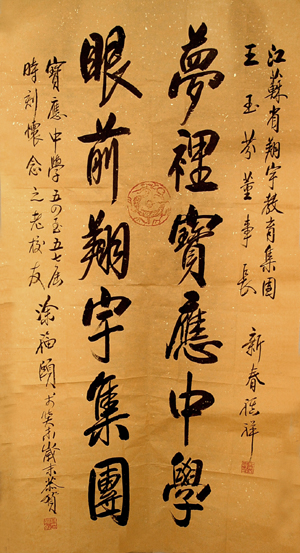 江蘇省翔宇教育集團
王玉芬董事長 新春祥
夢裡寶應中學
眼前翔宇集團
寶應中學五四至五七屆
時刻懷念之老校友 涂福頤於癸未歲末恭賀